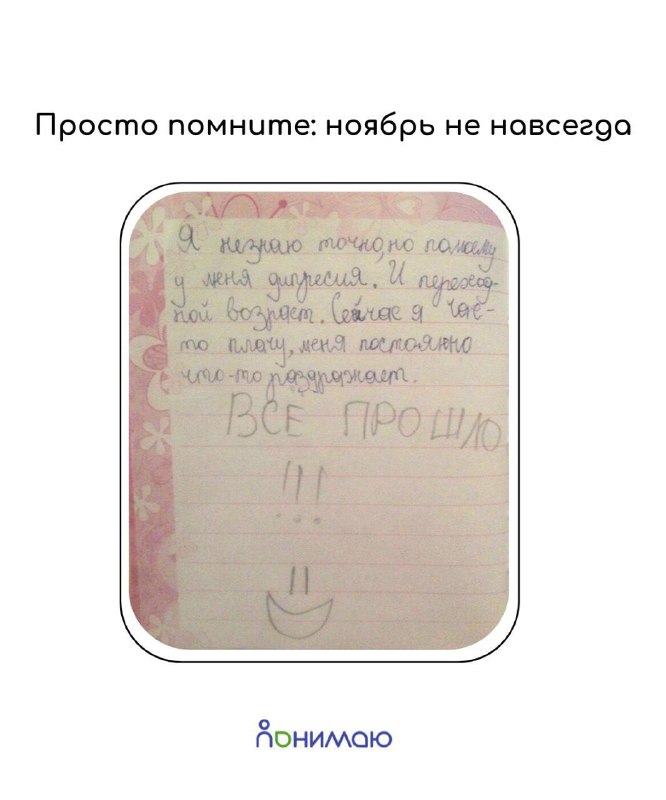 Просто помните: ноябрь не навсегда
Я незнаю точно, но помоему
у меня дипресия. И переход-
ной возраст. Сейчас я час-
то плачу, меня постоянно
что-то раздражает.
ВСЕ ПРОШЛО
!!!
понимаю